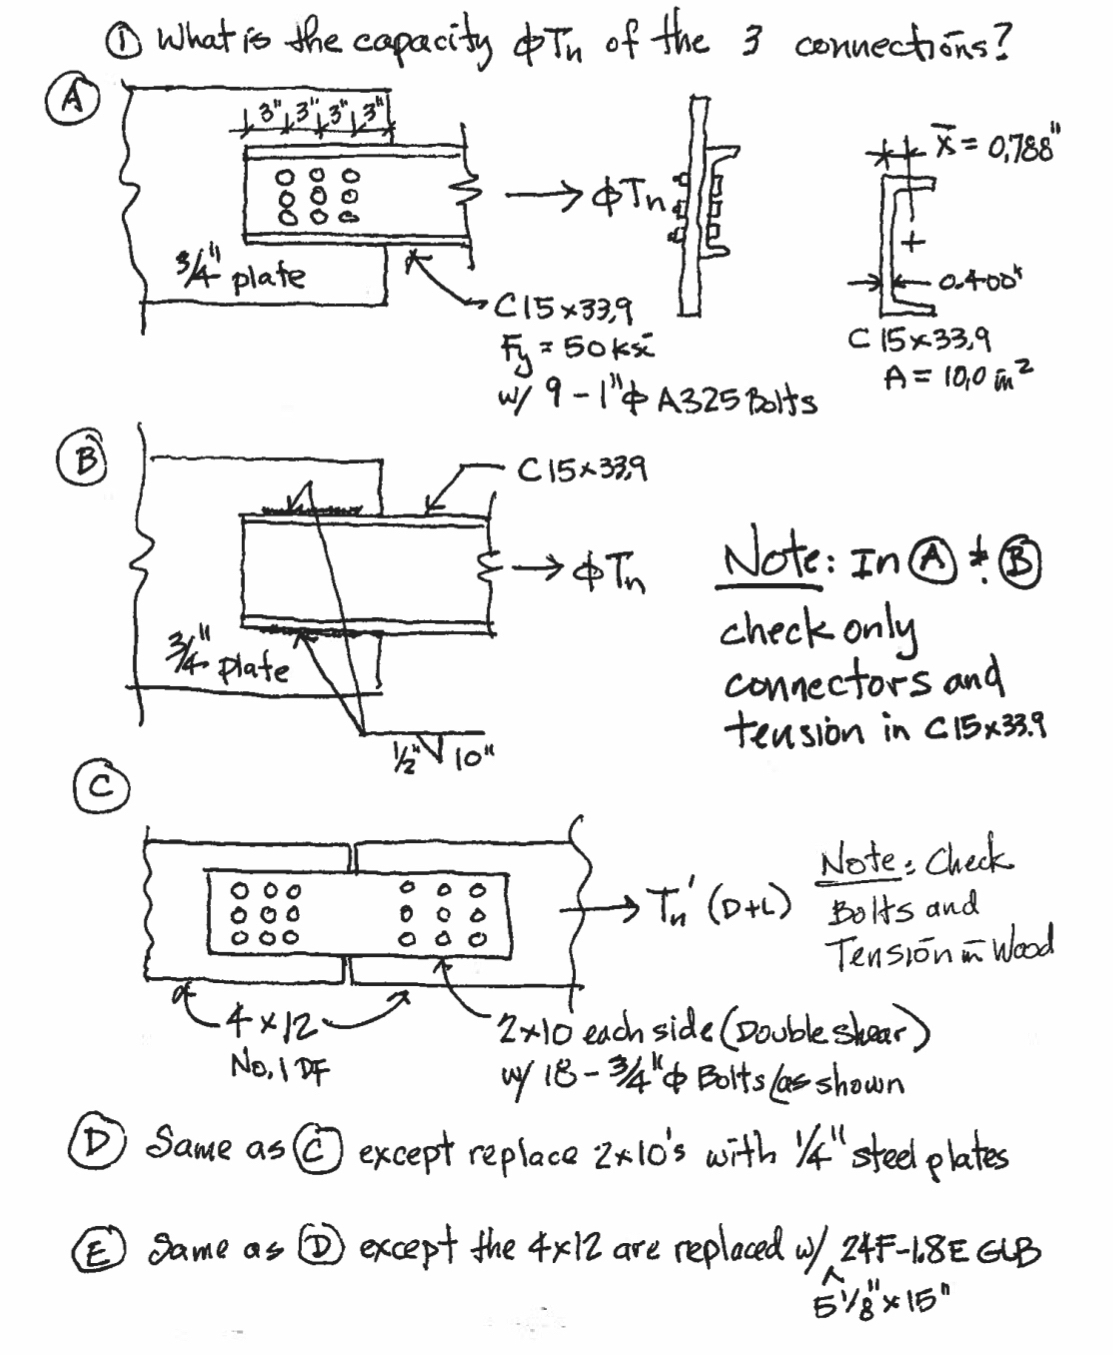 ① What is the capacity ϕTn of the 3 connections?
Ⓐ
3" 3" 3" 3"
x̄ = 0.788"
→ ϕTn
3/4" plate
0.400"
C15x33.9
Fy = 50 ksi
w/ 9 - 1"ϕ A325 Bolts
C 15x33.9
A = 10.0 in²
Ⓑ
C15x33.9
→ ϕTn
3/4" plate
1/2" 10"
Note: In Ⓐ & Ⓑ
check only
connectors and
tension in C15x33.9
Ⓒ
→ Tn' (D+L)
Note: Check
Bolts and
Tension in Wood
4 x 12
No. 1 DF
2x10 each side (Double shear)
w/ 18 - 3/4"ϕ Bolts (as shown
Ⓓ Same as Ⓒ except replace 2x10's with 1/4" steel plates
Ⓔ Same as Ⓓ except the 4x12 are replaced w/ 24F-1.8E GLB
5 1/8" x 15"